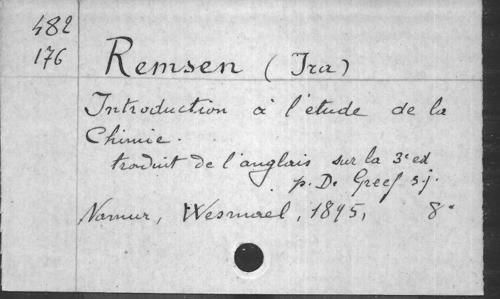 482
176
Remsen (Ira)
Introduction à l'étude de la
Chimie.
traduit de l'anglais sur la 3e ed
p. De Greef s.j.
Namur, Wesmael, 1895, 8°